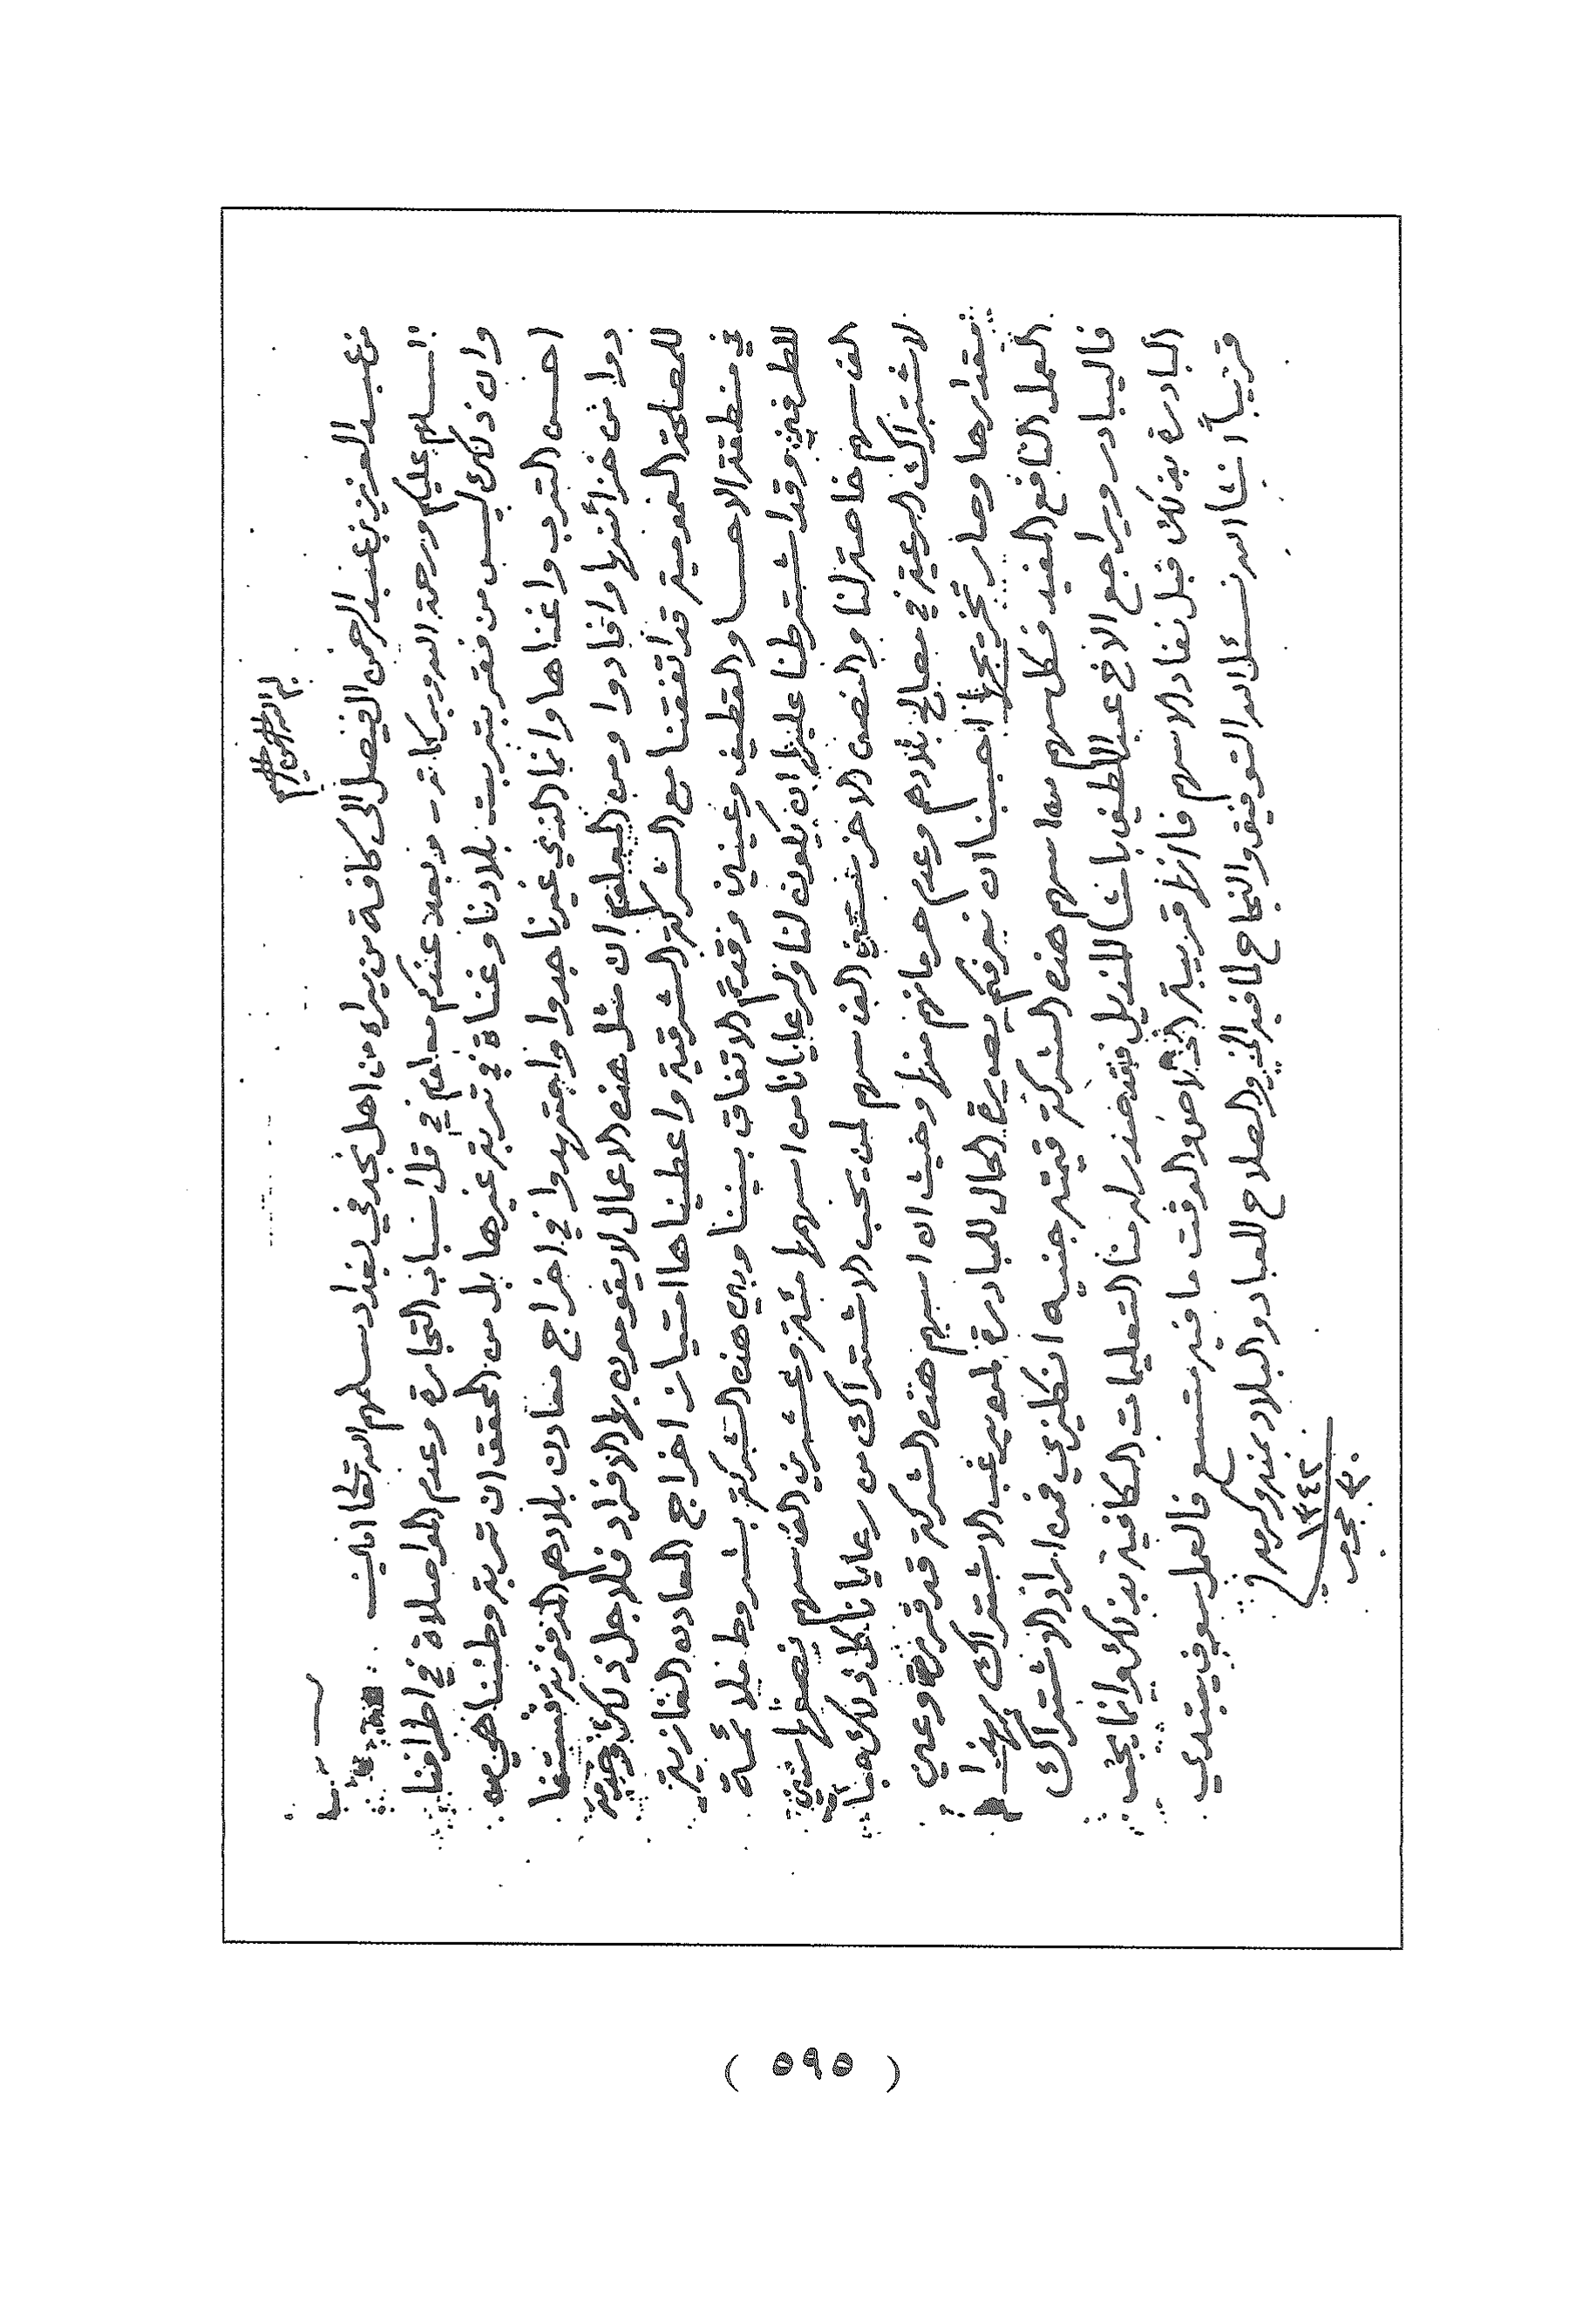 بسم الله الرحمن الرحيم
من عبد العزيز بن عبد الرحمن الفيصل الى كافة من يراه من اهل نجد في بغداد سلمهم الله تعالى امين
السلام عليكم ورحمة الله وبركاته وبعد عندكم معلوم في قل اسباب التجارة وعدم المواصلاة في اطرافنا
وان ذلك ليس من فقر بتربت بلادنا وغناة في تربة غيرها بل من المحقق ان تربة وطننا هي من
احسن الترب واغناها وانما الذي غيرنا جدوا واجتهدوا في اخراج معادن بلادهم المدفونة فستفا
دوا من خزائنها وافادوا ومن المعلوم ان مثل هذه الاعمال لا يقومون بها الافراد فلاجل ذلك وخدمة
للمصلحة العمومية قد اتفقنا مع الشركة الشرقية واعطيناها امتياز اخراج المعادن الغازية
في منطقة الاحسا والقطيف وقد تم الاتفاق بيننا وبين هذه الشركة بشروط ملائمة
للطرفين وقد اشترطنا عليها ان يكون لنا ولرعايانا من اسهمها مئة وعشرين الف سهم نصفها ستين
الف سهم خاصة لنا والنصف الاخر ستين الف سهم لمن يحب الاشتراك من رعايانا كل ذلك
لاشتراك الرعية في مصالح بلادهم وعدم حرمانهم منها وحيث ان اسهم هذه الشركة قد قررة وعين
مقدارها وصار تخريجها احببنا ان نعرفكم بصورة الحال للمبادرة لمن يرغب الاشتراك بهذا
العمل النافع المفيد فكل سهم من اسهم هذه الشركة قيمته جنيه انكليزي فمن اراد الاشتراك
فاليبادر ويراجع الاخ عبد اللطيف باشا المنديل فقد صدر له منا التعليمات الكافية بذلك وانما يجب
البادرة بذلك قبل نفاد الاسهم فانها قريبة والوقت ما فيه متسع فالعمل سوف يبتدي
قريباً انشا الله نسئل الله التوفيق والنجاح لما فيه الخير والصلاح للعباد والبلاد بمنه وكرمه
١٣٤٢
٣٠ محرم
( ٥٩٥ )